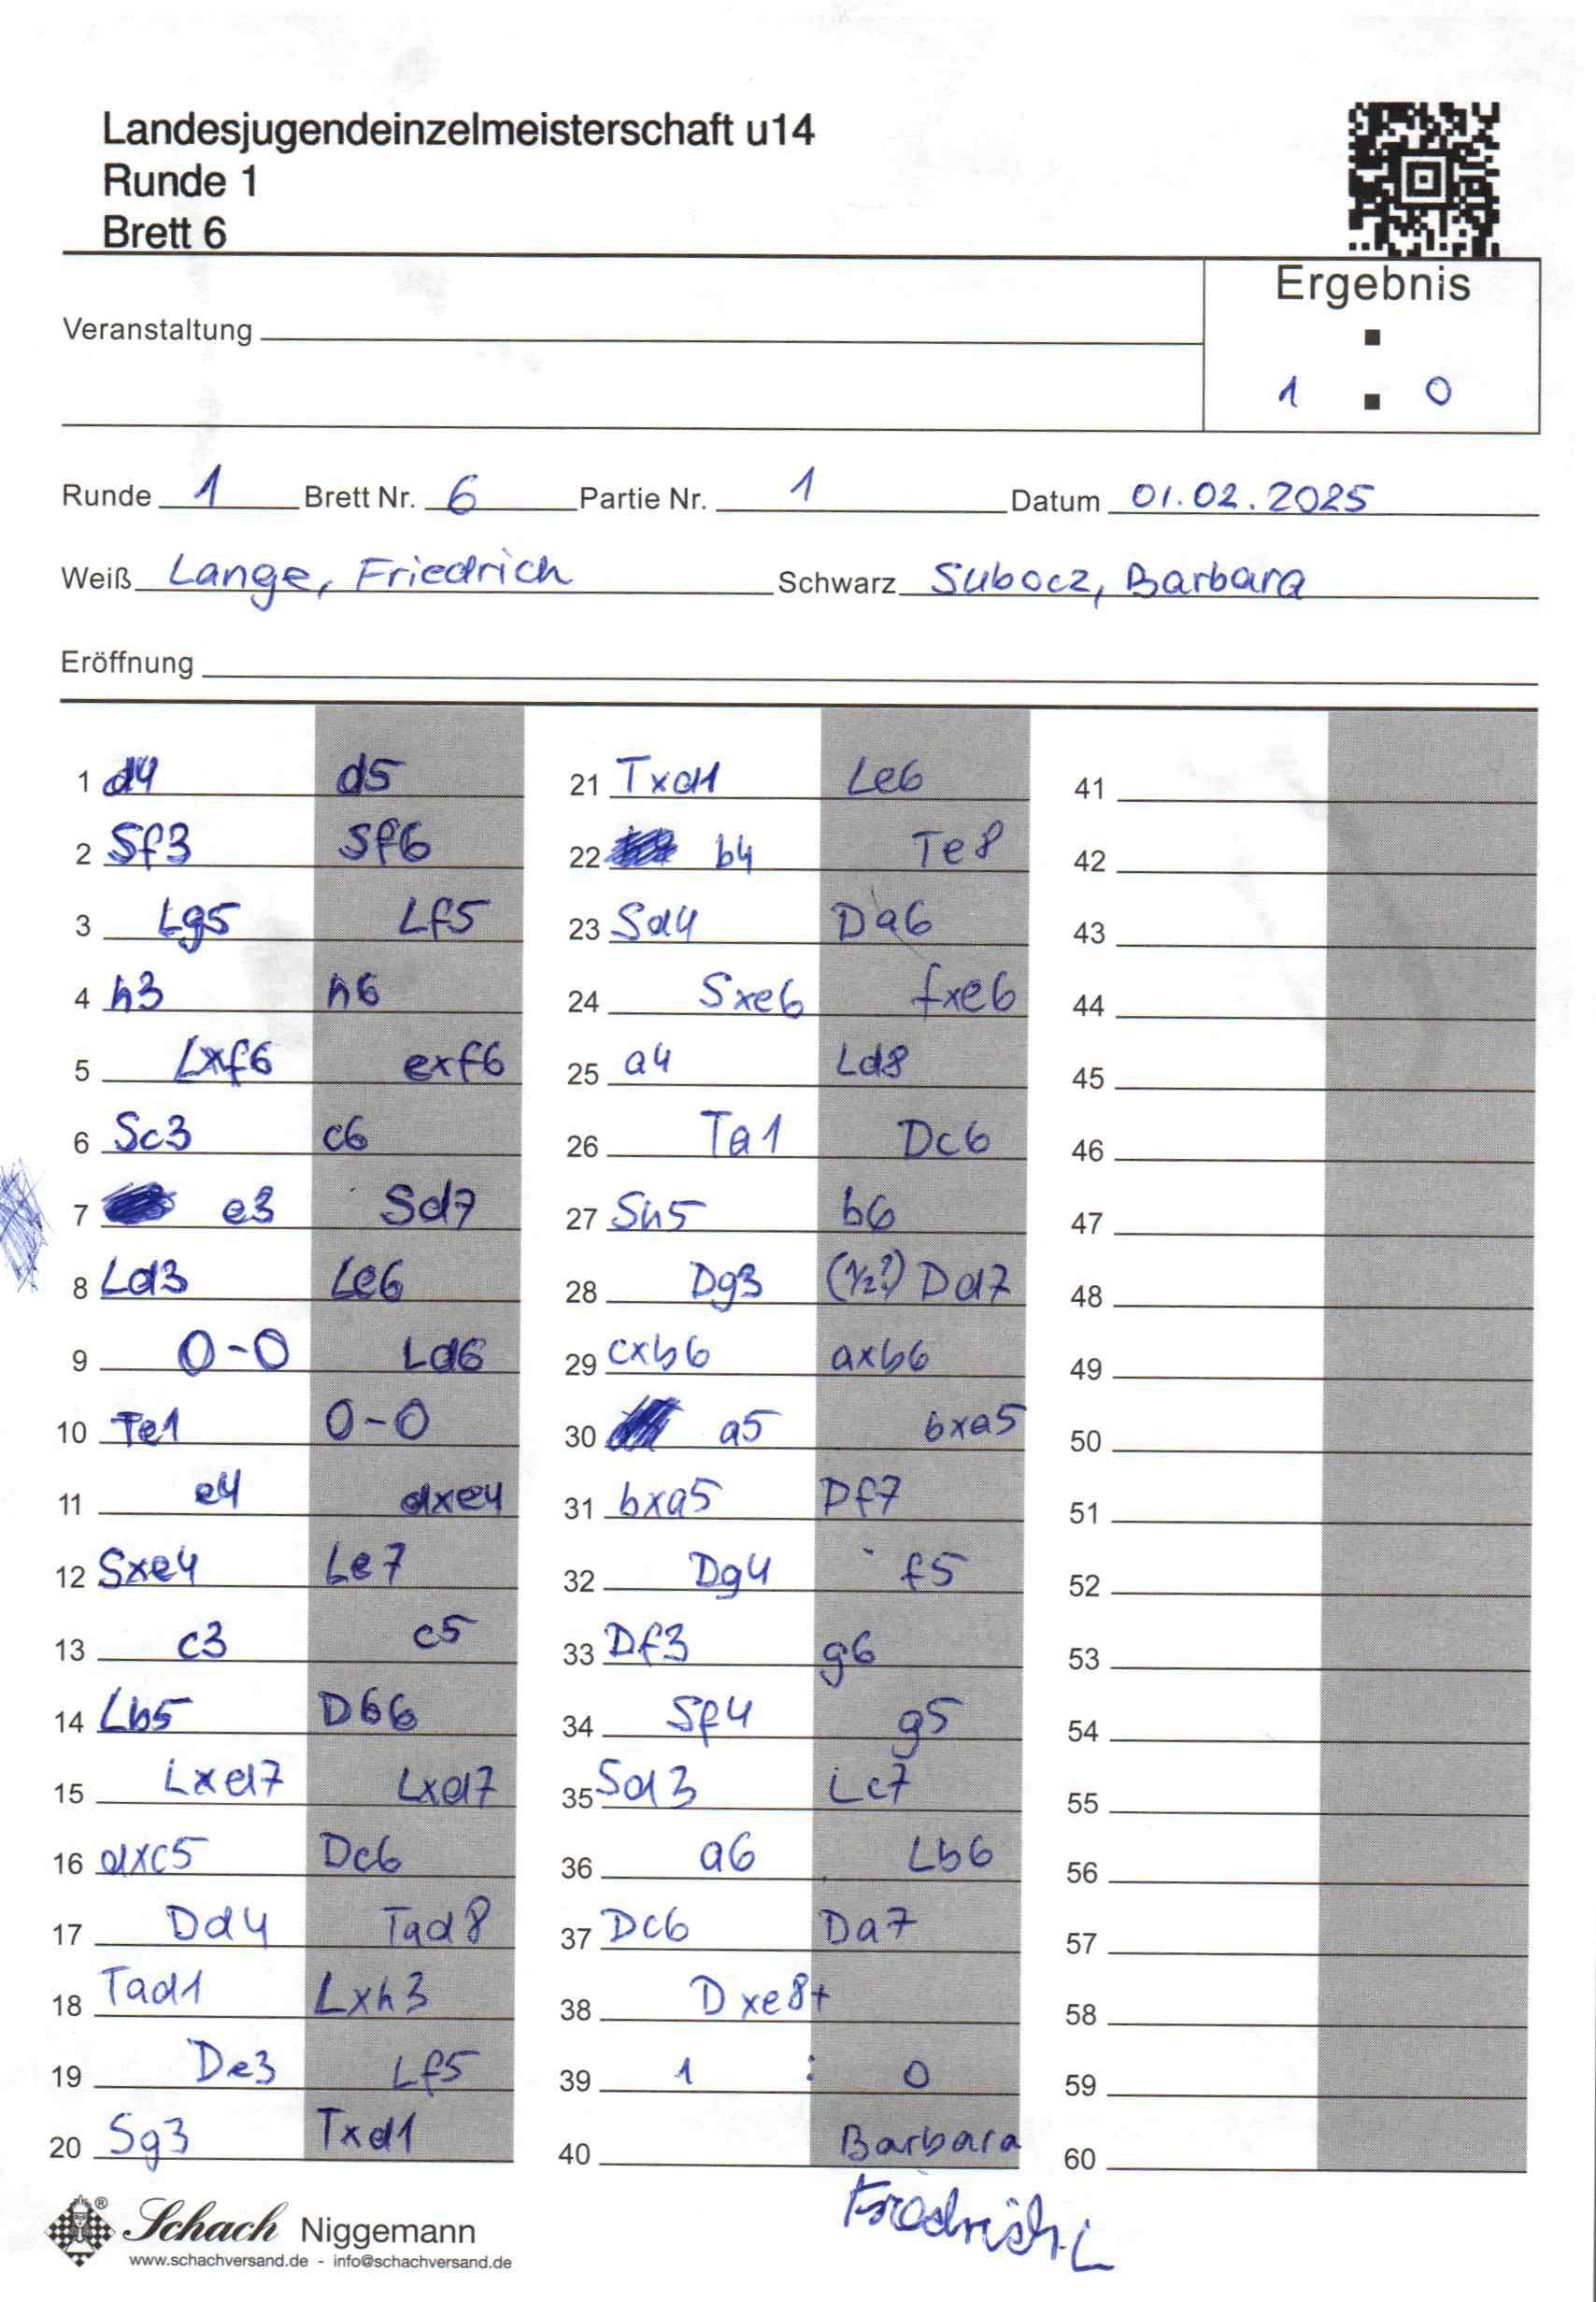 Landesjugendeinzelmeisterschaft u14
Runde 1
Brett 6
Ergebnis
Veranstaltung
1 : 0
Runde 1 Brett Nr. 6 Partie Nr. 1 Datum 01.02.2025
Weiß Lange, Friedrich Schwarz Subocz, Barbara
Eröffnung
1 d4 d5
2 Sf3 Sf6
3 Lg5 Lf5
4 h3 h6
5 Lxf6 exf6
6 Sc3 c6
7 e3 Sd7
8 Ld3 Le6
9 0-0 Ld6
10 Te1 0-0
11 e4 dxe4
12 Sxe4 Le7
13 c3 c5
14 Lb5 Db6
15 Lxd7 Lxd7
16 dxc5 Dc6
17 Dd4 Tad8
18 Tad1 Lxh3
19 De3 Lf5
20 Sg3 Txd1
21 Txd1 Le6
22 b4 Te8
23 Sd4 Da6
24 Sxe6 fxe6
25 a4 Ld8
26 Ta1 Dc6
27 Sh5 b6
28 Dg3 (½?) Dd7
29 cxb6 axb6
30 a5 bxa5
31 bxa5 Df7
32 Dg4 f5
33 Df3 g6
34 Sf4 g5
35 Sd3 Lc7
36 a6 Lb6
37 Dc6 Da7
38 Dxe8+
39 1 : 0
40 Barbara
Friedrich L
41
42
43
44
45
46
47
48
49
50
51
52
53
54
55
56
57
58
59
60
Schach Niggemann
www.schachversand.de - info@schachversand.de